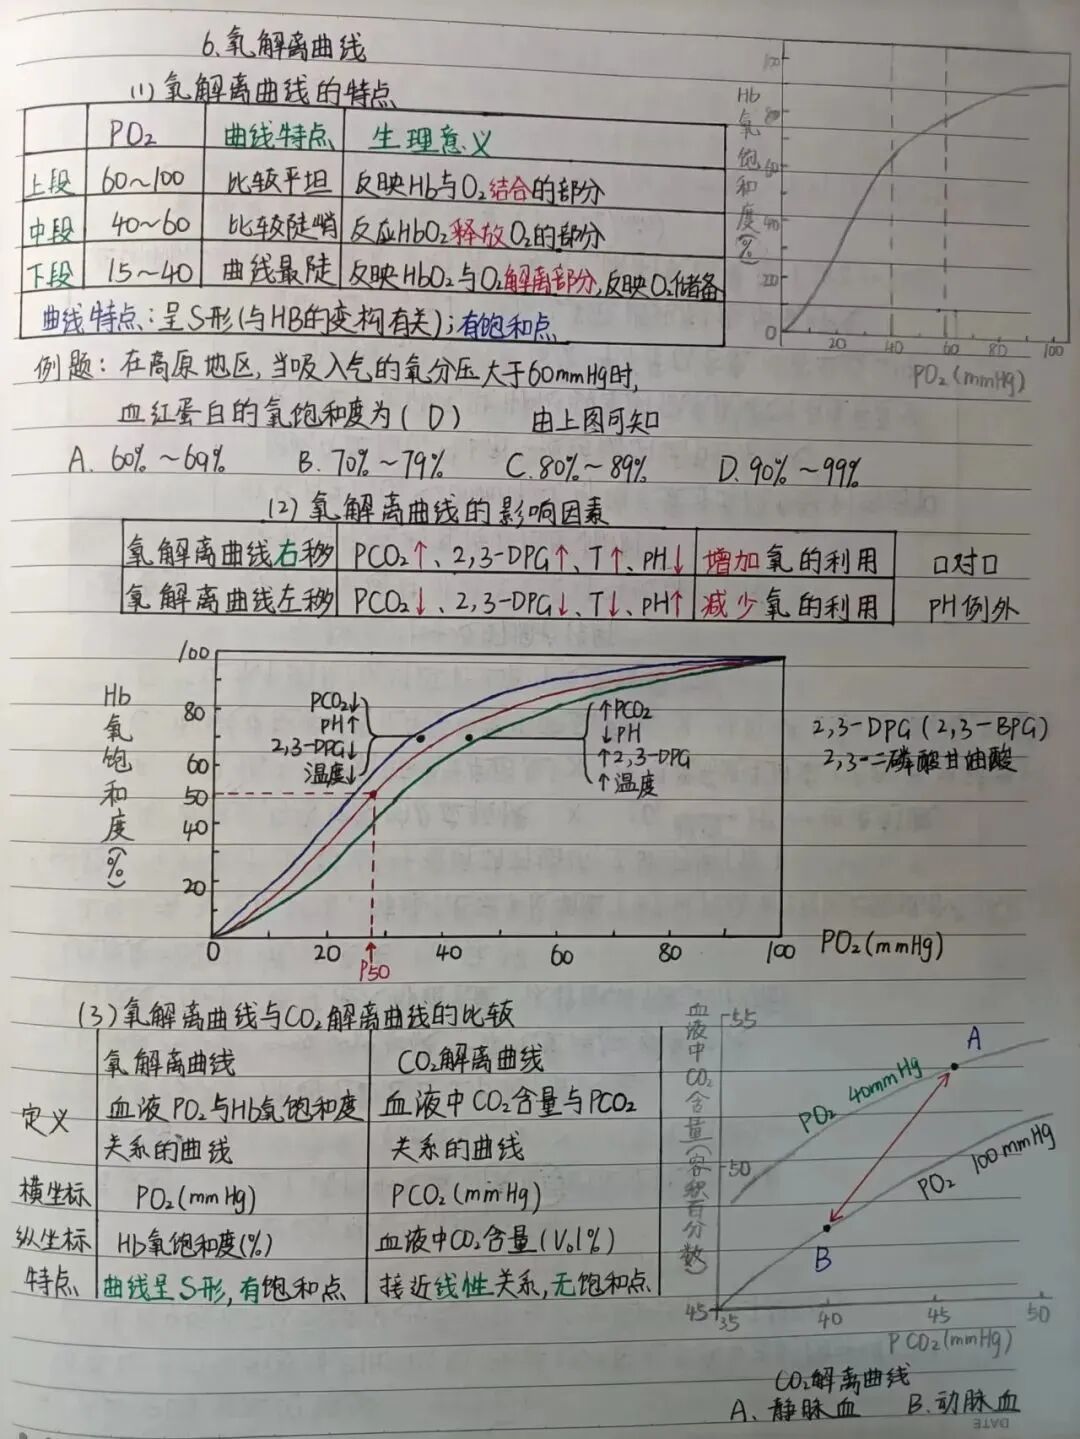 6.氧解离曲线
(1)氧解离曲线的特点
PO₂ 曲线特点 生理意义
上段 60~100 比较平坦 反映Hb与O₂结合的部分
中段 40~60 比较陡峭 反应HbO₂释放O₂的部分
下段 15~40 曲线最陡 反映HbO₂与O₂解离部分,反映O₂储备
曲线特点:呈S形(与HB的变构有关);有饱和点
Hb氧饱和度(%)
100
80
60
40
20
0
20 40 60 80 100
PO₂(mmHg)
例题:在高原地区,当吸入气的氧分压大于60mmHg时,
血红蛋白的氧饱和度为(D) 由上图可知
A. 60%~69% B. 70%~79% C. 80%~89% D. 90%~99%
(2)氧解离曲线的影响因素
氧解离曲线右移 PCO₂↑、2,3-DPG↑、T↑、PH↓ 增加氧的利用 口对口
氧解离曲线左移 PCO₂↓、2,3-DPG↓、T↓、PH↑ 减少氧的利用 PH例外
Hb氧饱和度(%)
100
80
60
50
40
20
PCO₂↓
PH↑
2,3-DPG↓
温度↓
↑PCO₂
↓PH
↑2,3-DPG
↑温度
2,3-DPG(2,3-BPG)
2,3-二磷酸甘油酸
0 20 40 60 80 100 PO₂(mmHg)
↑
P50
(3)氧解离曲线与CO₂解离曲线的比较
氧解离曲线 CO₂解离曲线
定义 血液PO₂与Hb氧饱和度 血液中CO₂含量与PCO₂
关系的曲线 关系的曲线
横坐标 PO₂(mmHg) PCO₂(mmHg)
纵坐标 Hb氧饱和度(%) 血液中CO₂含量(Vol%)
特点 曲线呈S形,有饱和点 接近线性关系,无饱和点
血液中CO₂含量(容积百分数)
55
50
45
A
PO₂ 40mmHg
PO₂ 100mmHg
B
35 40 45 50
PCO₂(mmHg)
CO₂解离曲线
A.静脉血 B.动脉血
DATE